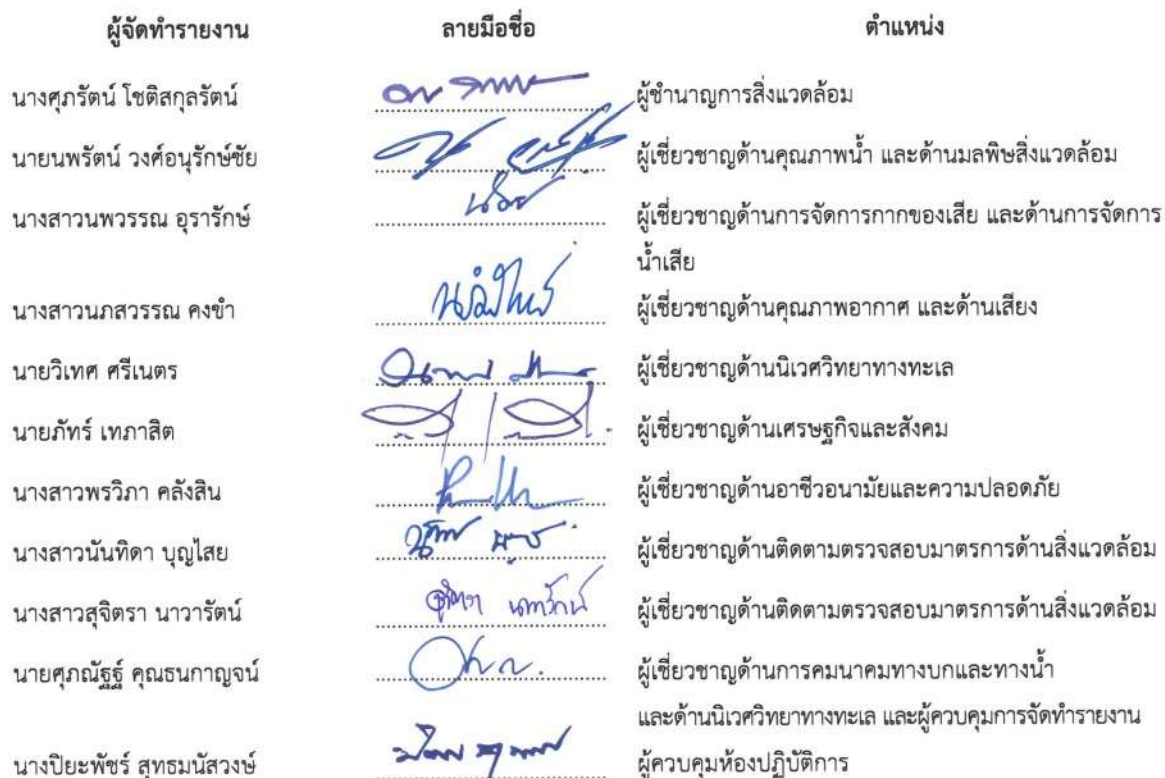 ผู้จัดทำรายงาน ลายมือชื่อ ตำแหน่ง
นางศุภรัตน์ โชติสกุลรัตน์ ผู้ชำนาญการสิ่งแวดล้อม
นายนพรัตน์ วงศ์อนุรักษ์ชัย ผู้เชี่ยวชาญด้านคุณภาพน้ำ และด้านมลพิษสิ่งแวดล้อม
นางสาวนพวรรณ อุรารักษ์ ผู้เชี่ยวชาญด้านการจัดการกากของเสีย และด้านการจัดการ
น้ำเสีย
นางสาวนภสวรรณ คงขำ ผู้เชี่ยวชาญด้านคุณภาพอากาศ และด้านเสียง
นายวิเทศ ศรีเนตร ผู้เชี่ยวชาญด้านนิเวศวิทยาทางทะเล
นายภัทร์ เทภาสิต ผู้เชี่ยวชาญด้านเศรษฐกิจและสังคม
นางสาวพรวิภา คลังสิน ผู้เชี่ยวชาญด้านอาชีวอนามัยและความปลอดภัย
นางสาวนันทิดา บุญไสย ผู้เชี่ยวชาญด้านติดตามตรวจสอบมาตรการด้านสิ่งแวดล้อม
นางสาวสุจิตรา นาวารัตน์ ผู้เชี่ยวชาญด้านติดตามตรวจสอบมาตรการด้านสิ่งแวดล้อม
นายศุภณัฐฐ์ คุณธนกาญจน์ ผู้เชี่ยวชาญด้านการคมนาคมทางบกและทางน้ำ
และด้านนิเวศวิทยาทางทะเล และผู้ควบคุมการจัดทำรายงาน
นางปิยะพัชร์ สุทธมนัสวงษ์ ผู้ควบคุมห้องปฏิบัติการ